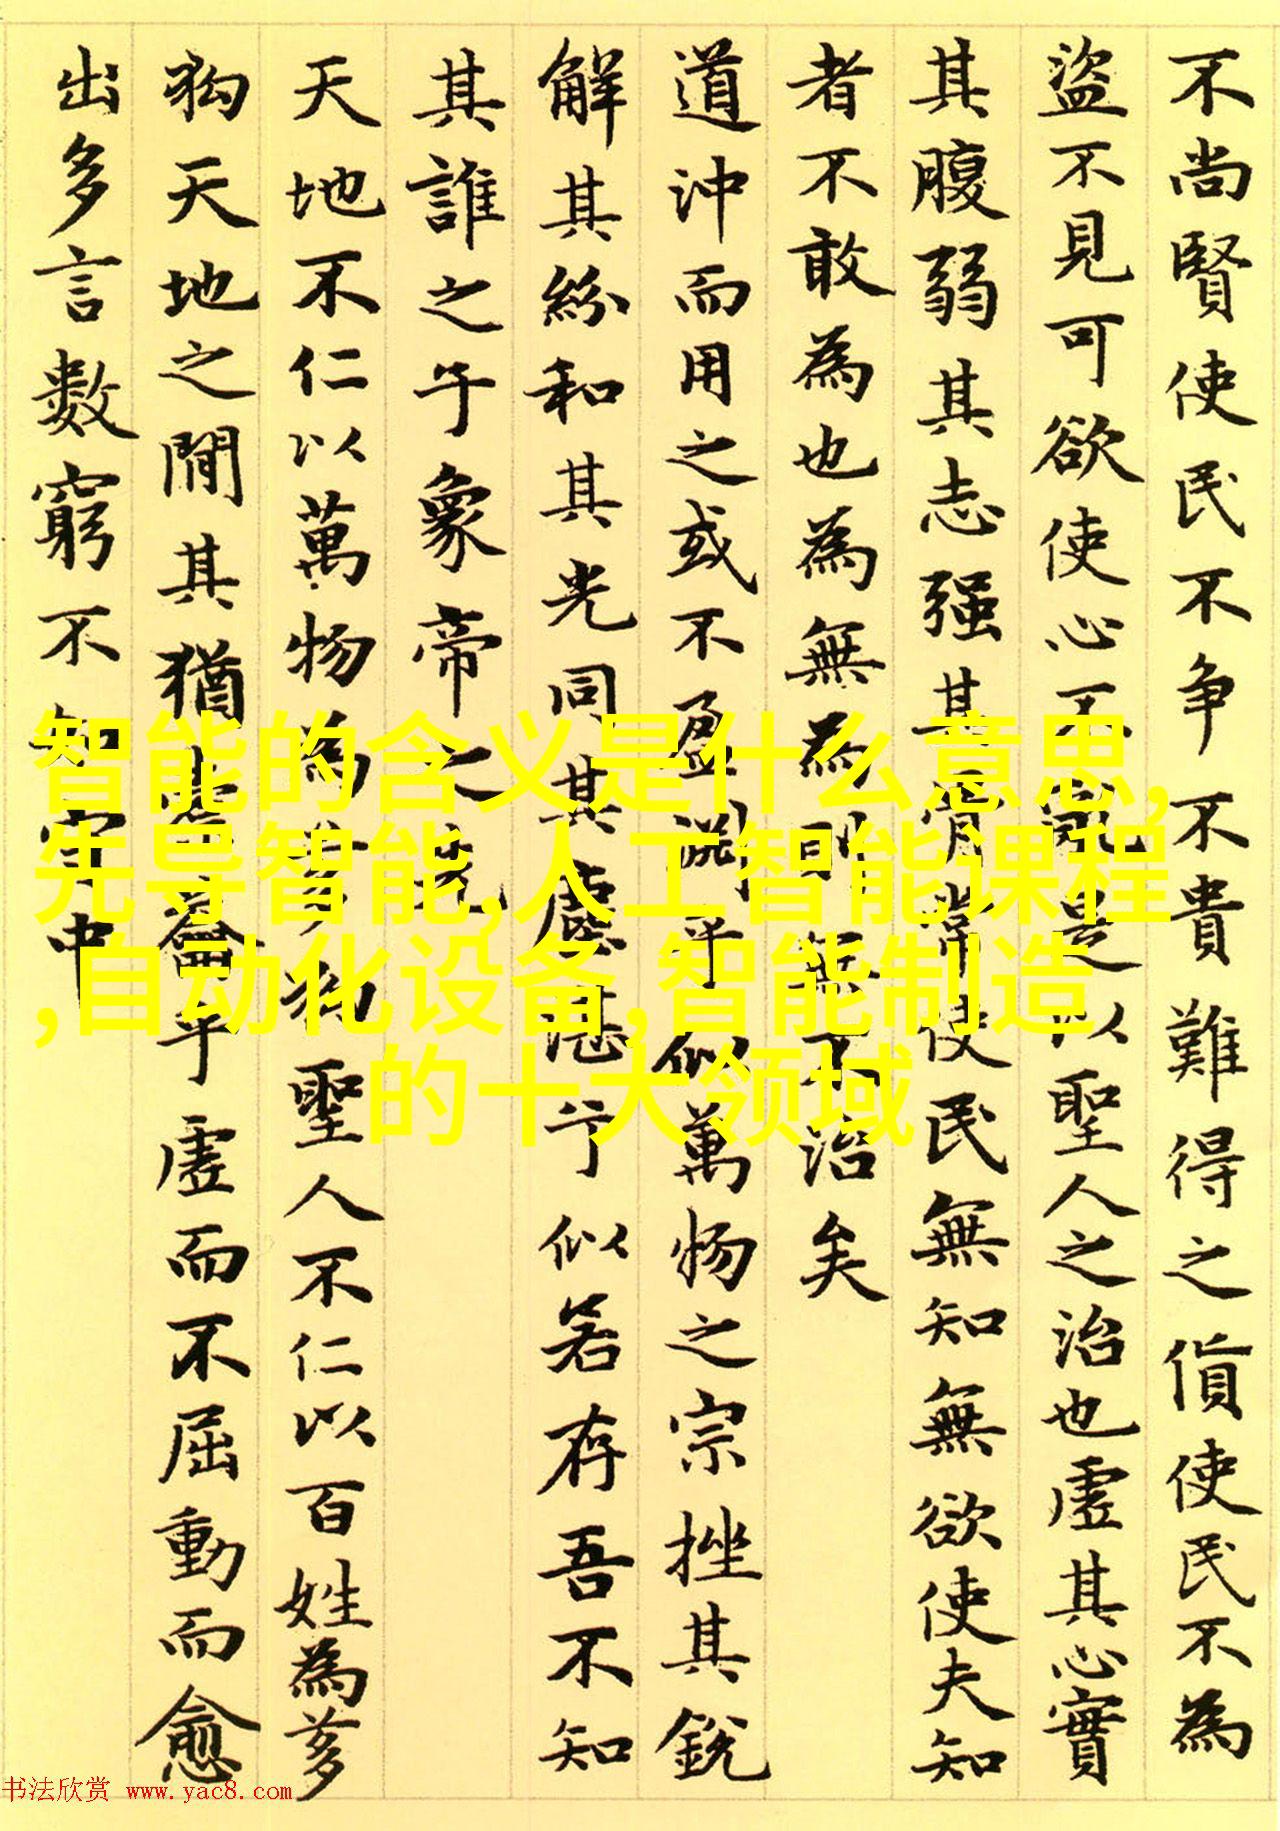 不尚賢使民不争不貴難得之貨使民不為
盜不見可欲使心不亂是以聖人之治也虛其心實
其腹弱其志强其骨常使民無知無欲使夫知
者不敢為也為無為則無不治矣
道沖而用之或不盈淵乎似萬物之宗挫其銳
解其紛和其光同其塵湛兮似若存吾不知
其誰之子象帝之先
天地不仁以萬物為芻狗聖人不仁以百姓為芻
狗天地之間其猶橐籥乎虛而不屈動而愈
出多言數窮不知守中
智能的含义是什么意思,
先导智能,人工智能课程
,自动化设备,智能制造
的十大领域
书法欣赏 www.yac8.com